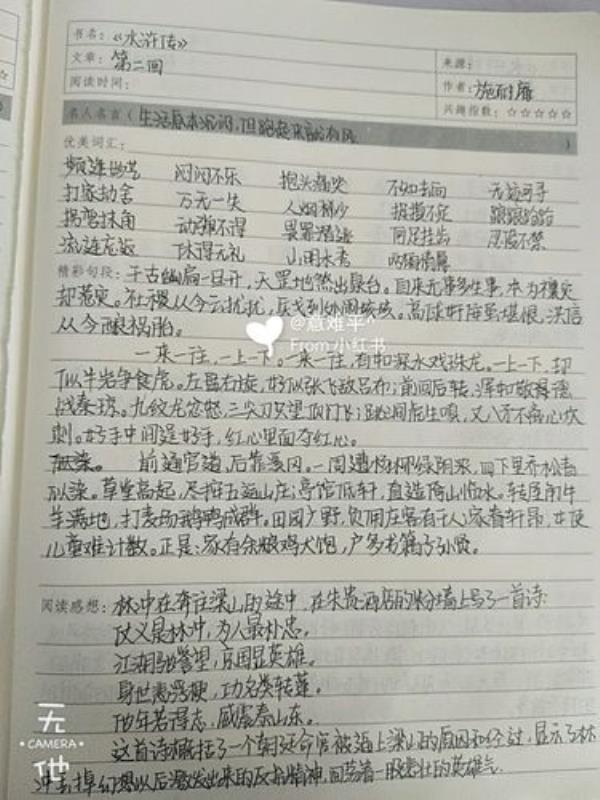 书名：《水浒传》
文章：第二回
来源：
阅读时间：
作者：施耐庵
兴趣指数：☆☆☆☆☆
名人名言（生活原本沉闷，但跑起来就有风 ）
优美词汇：
频连 闷闷不乐 抱头痛哭 不知去向 无迹可寻
打家劫舍 万无一失 人烟稀少 捉摸不定 踉踉跄跄
拐弯抹角 动弹不得 畏罪潜逃 何足挂齿 忍俊不禁
流连忘返 休得无礼 山明水秀
精彩句段：千古幽扃一旦开，天罡地煞出泉台。自来无事多生事，本为禳灾
却惹灾。社稷从今云扰扰，兵戈到处闹垓垓。高俅奸佞虽堪恨，洪信
从今酿祸胎。
一来一往，一上一下。一来一往，有如深水戏珠龙。一上一下，却
似半岩争食虎。左盘右旋，好似张飞敌吕布；前回后转，浑如敬德
战秦琼。九纹龙忿怒，三尖刀只望顶门飞；跳涧虎生嗔，又八矛不离心坎
刺。好手中间逞好手，红心里面夺红心。
前通官道，后靠溪冈。一周遭杨柳绿阴浓，四下里乔松青
似染。草堂高起，尽按五运山庄；亭馆低轩，直造倚山临水。转屋角牛
羊满地，打麦场鹅鸭成群。田园广野，负佣庄客有千人；家眷轩昂，女使
儿童难计数。正是：家有余粮鸡犬饱，户多书籍子孙贤。
阅读感想：林冲在奔往梁山的途中，在朱贵酒店的粉墙上写了一首诗：
仗义是林冲，为人最朴忠。
江湖驰誉望，京国显英雄。
身世悲浮梗，功名类转蓬。
他年若得志，威震泰山东。
这首诗概括了一个朝廷命官被逼上梁山的原因和经过，显示了林
冲丢掉幻想以后激发出来的反抗精神，回荡着一股悲壮的英雄气。
@意难平^
From 小红书
无
·CAMERA·
他